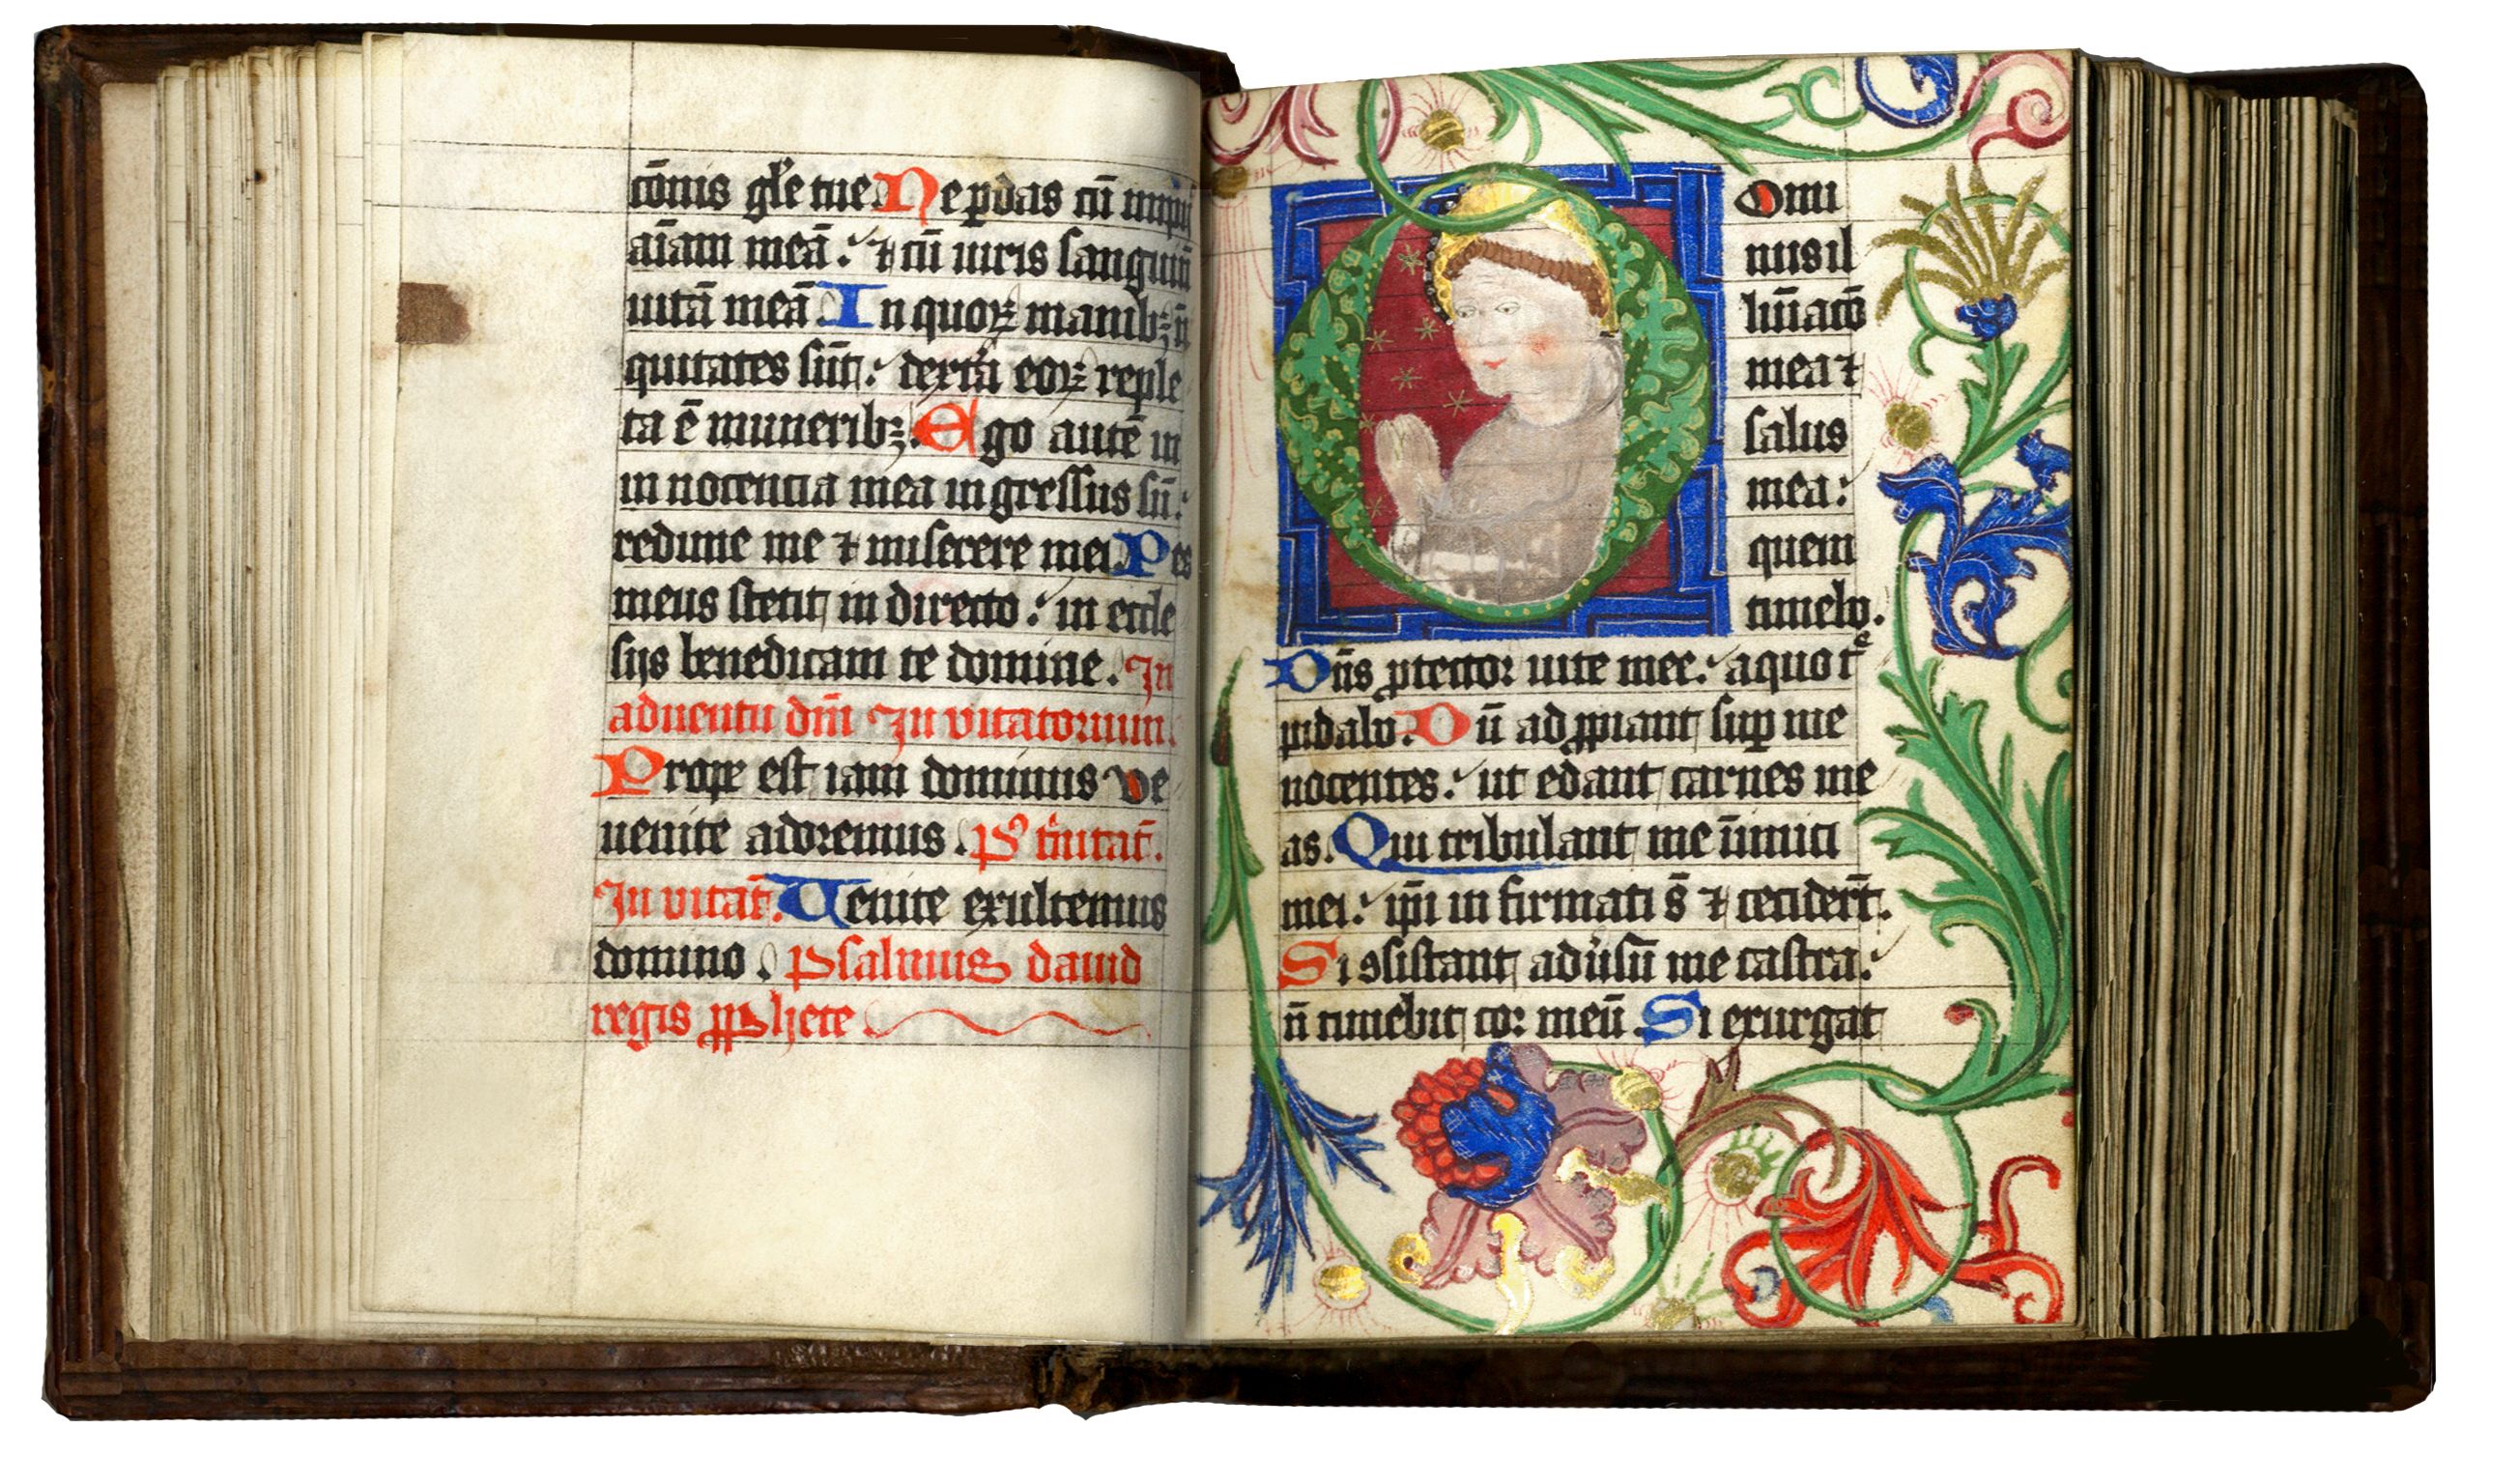 cōnis gl̄e tue Ne ꝑdas cū impijs
aīam meā: ⁊ cū uiris sanguinū
uitā meā In quoꝝ manibꝫ in
quitates sūt: dextr̄a eoꝝ reple
ta ē muneribꝫ. Ego autē in
innocentia mea ingressus sū:
redime me ⁊ miserere mei Pes
meus stetit in directo: in eccle
sijs benedicam te domine. In
aduentu dn̄i Inuitatorium.
Prope est iam dominus ve
uenite adoremus. Ps t̄nitat̄.
Inuitat̄. Uenite exultemus
domino. Psalmus dauid
regis ꝓphete
Domi
nus il
lūīatō
mea ⁊
salus
mea:
quem
timebo.
Dn̄s ꝓtector uite mee: a quo t̄e
pidabo. Dū adꝓpiant suꝑ me
nocentes: ut edant carnes me
as. Qui tribulant me īnimici
mei: ip̄i infirmati s̄ ⁊ cecider̄t.
Si ɔsistant adu̾sū me castra:
n̄ timebit cor meū. Si exurgat